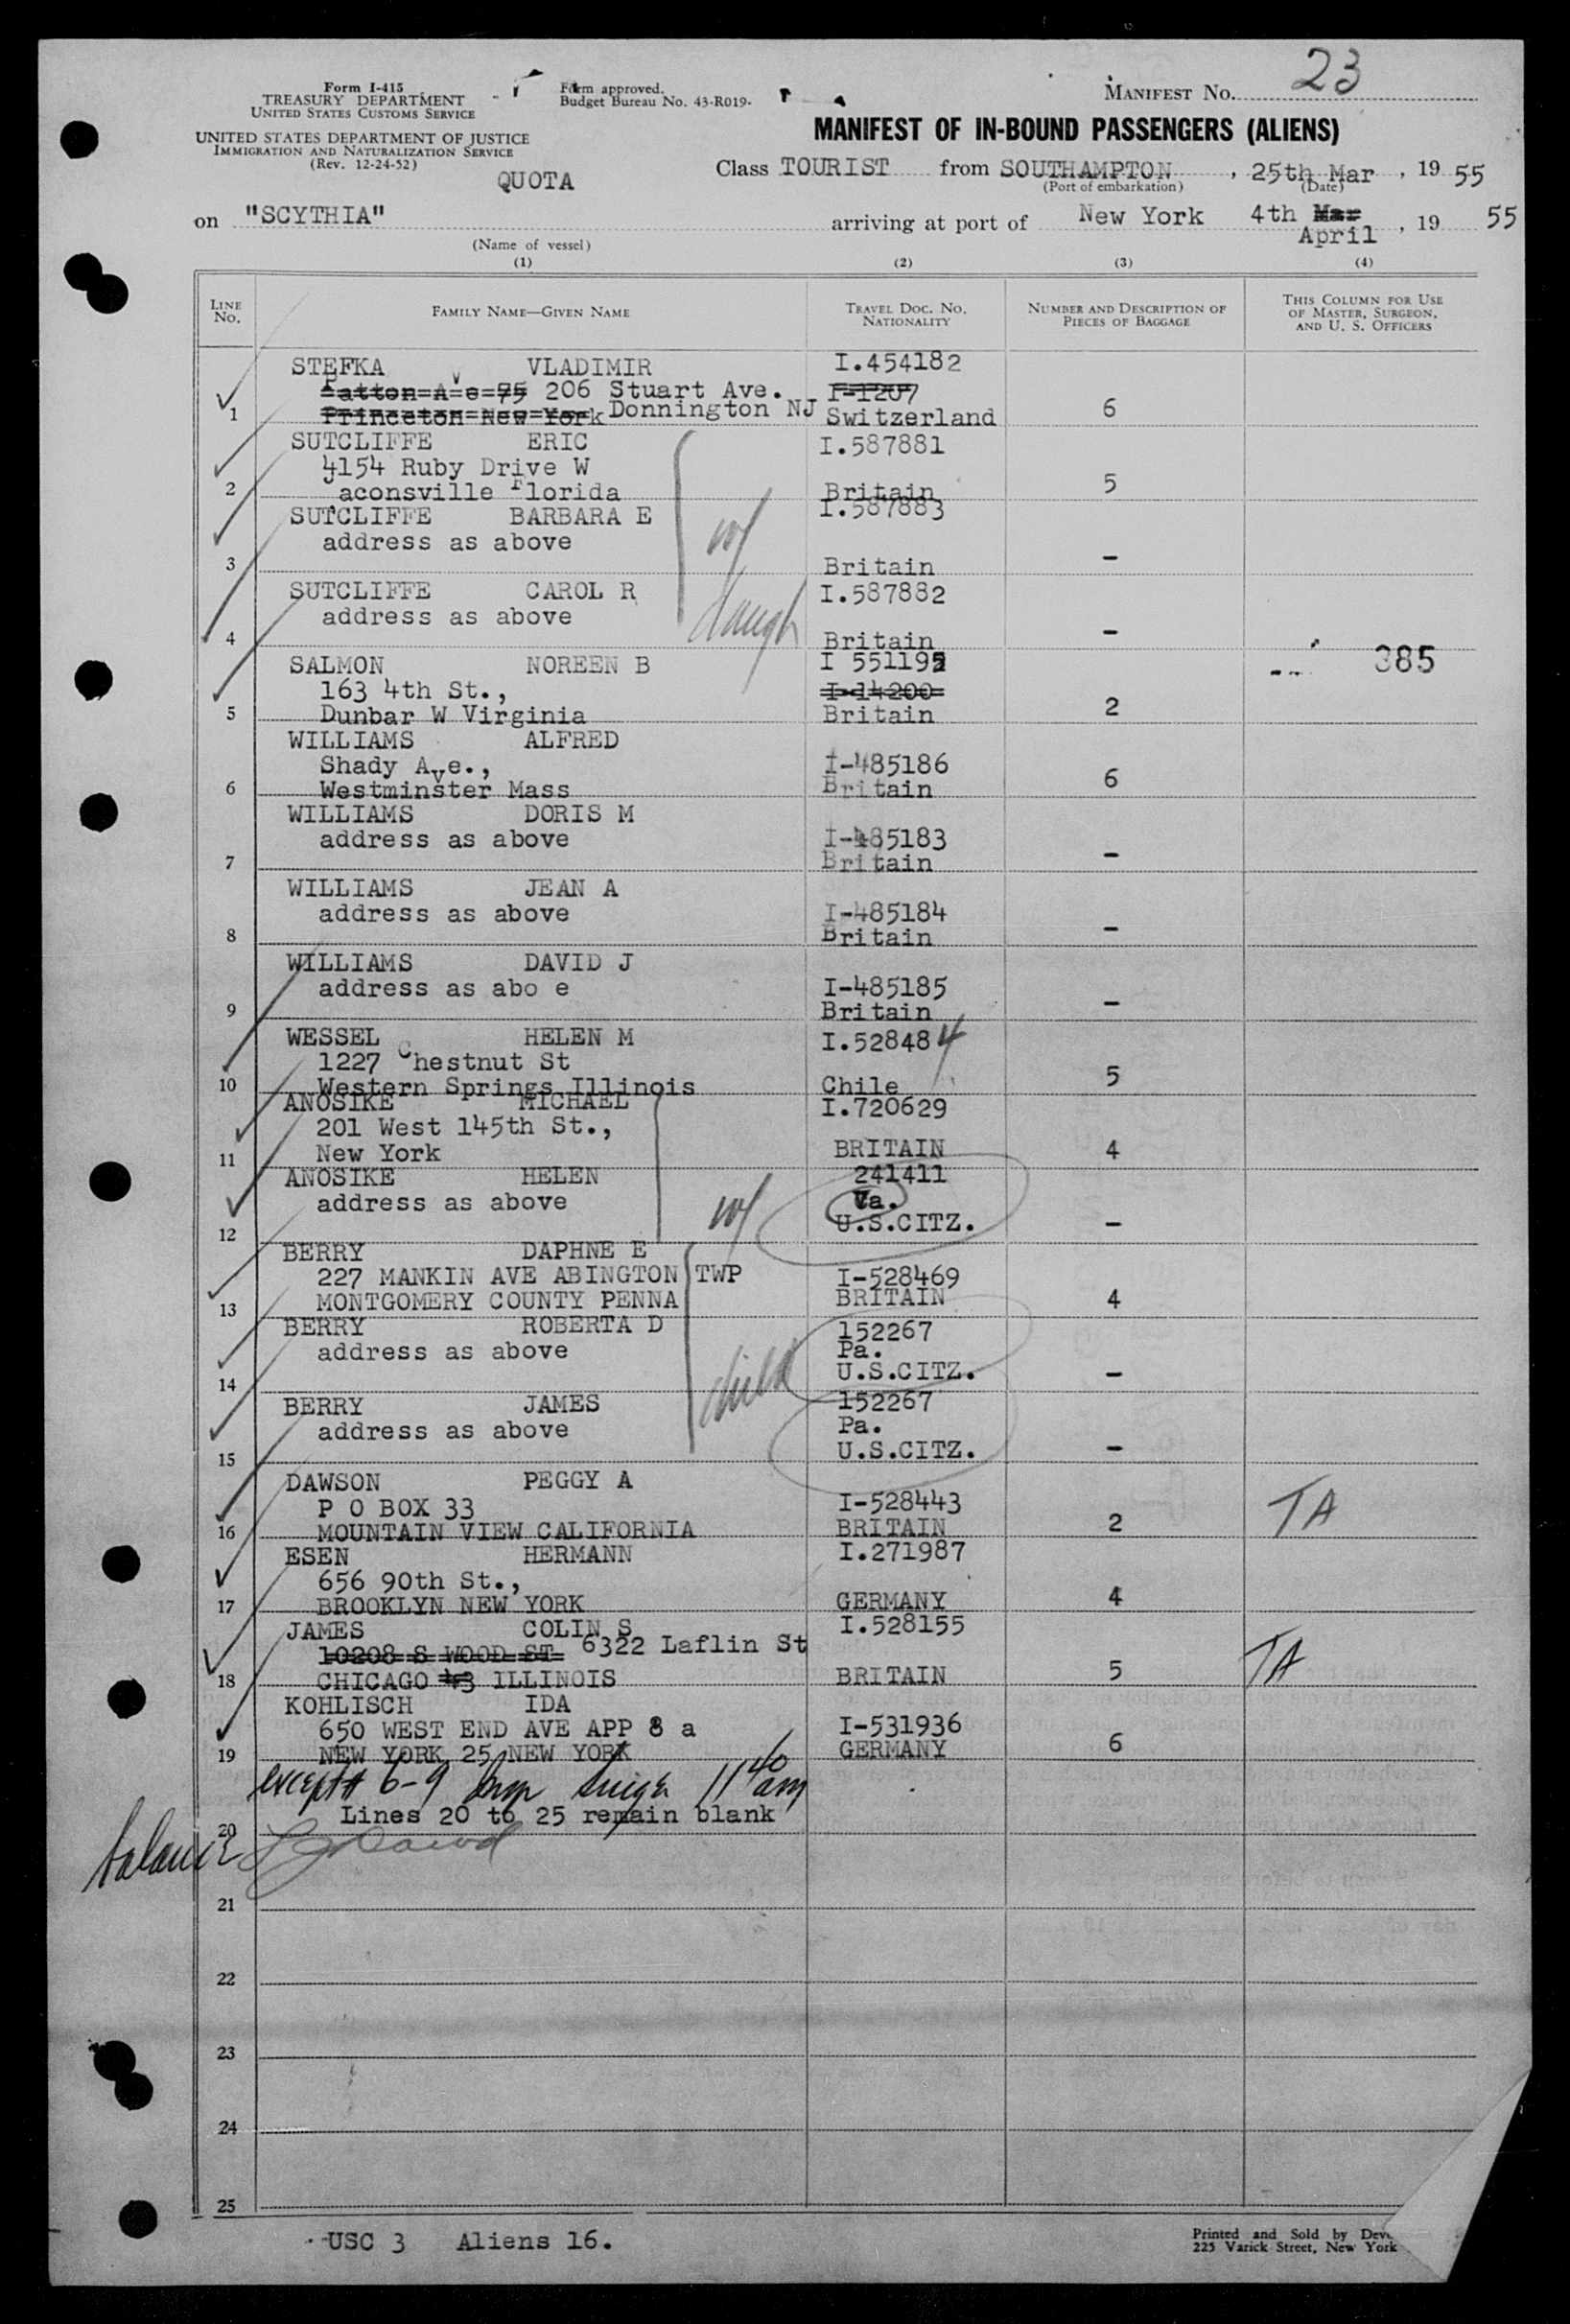 23
Form I-415
TREASURY DEPARTMENT
UNITED STATES CUSTOMS SERVICE
Form approved.
Budget Bureau No. 43-R019-
MANIFEST NO.
UNITED STATES DEPARTMENT OF JUSTICE
IMMIGRATION AND NATURALIZATION SERVICE
(Rev. 12-24-52)
MANIFEST OF IN-BOUND PASSENGERS (ALIENS)
QUOTA
Class TOURIST from SOUTHAMPTON, 25th Mar, 19 55
(Port of embarkation) (Date)
on "SCYTHIA" arriving at port of New York 4th Mar April, 19 55
(Name of vessel)
(1) (2) (3) (4)
LINE NO. FAMILY NAME—GIVEN NAME TRAVEL DOC. NO. NATIONALITY NUMBER AND DESCRIPTION OF PIECES OF BAGGAGE THIS COLUMN FOR USE OF MASTER, SURGEON, AND U. S. OFFICERS
STEFKA VLADIMIR I.454182
Patton A e 75 206 Stuart Ave. I-1207
1 Princeton New York Donnington NJ Switzerland 6
SUTCLIFFE ERIC I.587881
4154 Ruby Drive W
2 Jaconsville Florida Britain 5
SUTCLIFFE BARBARA E I.587883
address as above w/
3 Britain -
SUTCLIFFE CAROL R I.587882
address as above daugh
4 Britain -
SALMON NOREEN B I 551195 385
163 4th St., I-14200
5 Dunbar W Virginia Britain 2
WILLIAMS ALFRED
Shady Ave., I-485186
6 Westminster Mass Britain 6
WILLIAMS DORIS M
address as above I-485183
7 Britain -
WILLIAMS JEAN A
address as above I-485184
8 Britain -
WILLIAMS DAVID J
address as abo e I-485185
9 Britain -
WESSEL HELEN M I.528484
1227 Chestnut St
10 Western Springs Illinois Chile 5
ANOSIKE MICHAEL I.720629
201 West 145th St.,
11 New York BRITAIN 4
ANOSIKE HELEN 241411
address as above w/ Va.
12 U.S.CITZ. -
BERRY DAPHNE E
227 MANKIN AVE ABINGTON TWP I-528469
13 MONTGOMERY COUNTY PENNA BRITAIN 4
BERRY ROBERTA D 152267
address as above Pa.
14 child U.S.CITZ. -
BERRY JAMES 152267
address as above Pa.
15 U.S.CITZ. -
DAWSON PEGGY A
P O BOX 33 I-528443 TA
16 MOUNTAIN VIEW CALIFORNIA BRITAIN 2
ESEN HERMANN I.271987
656 90th St.,
17 BROOKLYN NEW YORK GERMANY 4
JAMES COLIN S I.528155
10208 S WOOD ST 6322 Laflin St TA
18 CHICAGO 43 ILLINOIS BRITAIN 5
KOHLISCH IDA
650 WEST END AVE APP 8 a I-531936
19 NEW YORK 25 NEW YORK GERMANY 6
except # 6-9 11 40 am
Lines 20 to 25 remain blank
20
balance
21
22
23
24
25
USC 3 Aliens 16.
Printed and Sold by
225 Varick Street, New York